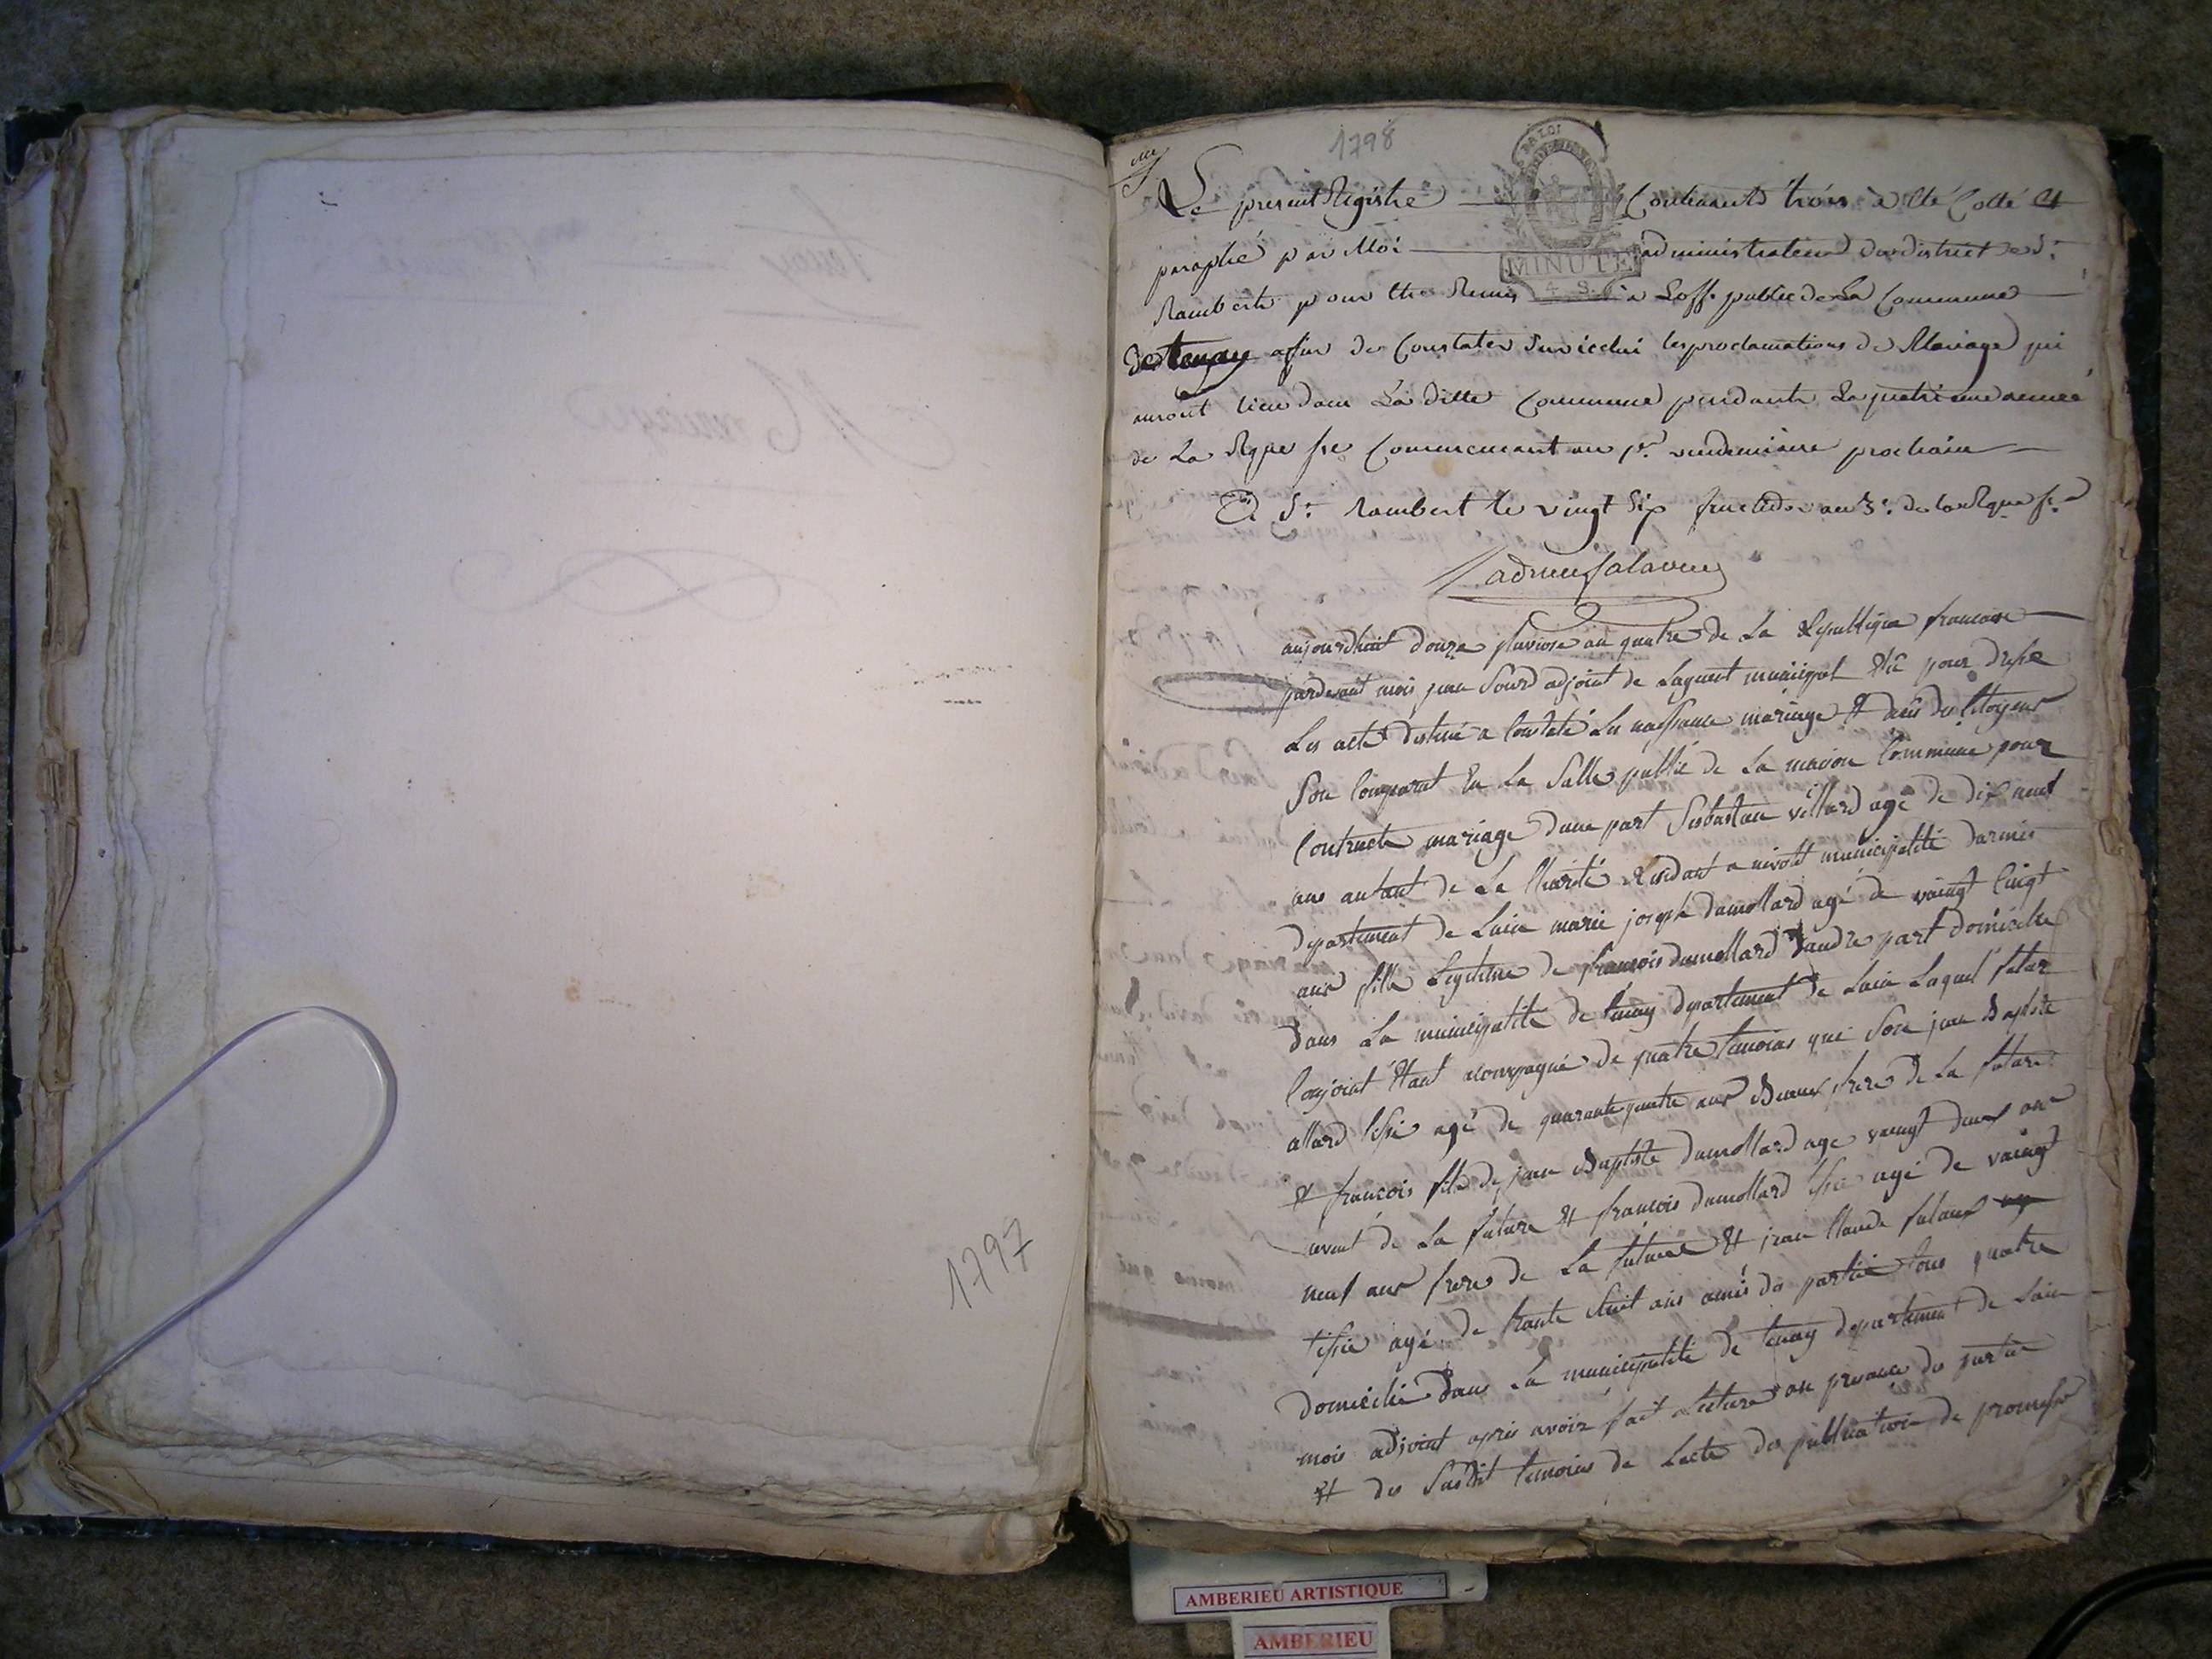 1797
1798
Le present Registre Contenants trois a eté Cotté et
paraphé par Moi administrateur du district de St.
Rambert pour etre Remis a Loff. public de La Commune
de tenay afin de Constater sur icelui les proclamations de Mariage qui
auront lieu dans La ditte Commune pendant La quatrieme année
de La Rque fse Commencant au pr. vendemiaire prochain
A St. Rambert le vingt six fructidor an 3e. de la Rque fse
MINUTE
4 S.
aujourdhuit douze pluviose an quatre de La Republique francoise
pardevant mois jean Sourd adjoint de Lagent municipal pour
Les acte destiné a Constaté Les naissance mariage et deces des Citoyens
Son Comparut En La Salle public de La maison Commune pour
Contracte mariage dune part Sebastien villard agé de dix neuf
ans anfant de La Charité Residant a nivolet municipalité
departement de Lain marie joseph dumollard agé de vaingt Cinqt
ans fille Legitime de francois dumollard daudre part domicilie
dans La municipalité de tenay departement de Lain Laquel futur
Conjoint Etant acompagné de quatre temoins qui Son jean Baptiste
allard agé de quarante quatre ans Beaux frere de La future
et francois fils de jean Baptiste dumollard age vaingt deux ans
de La future et francois dumollard agé de vaingt
neuf ans frere de La future et jean Claude
agé de trante huit ans amis des partie tous quatre
domicilié dans La municipalité de tenay departement de Lain
mois adjoint apres avoir fait Lecture en presance des partie
et des Susdit temoins de Lacte des publication de promesse
AMBERIEU ARTISTIQUE
AMBERIEU